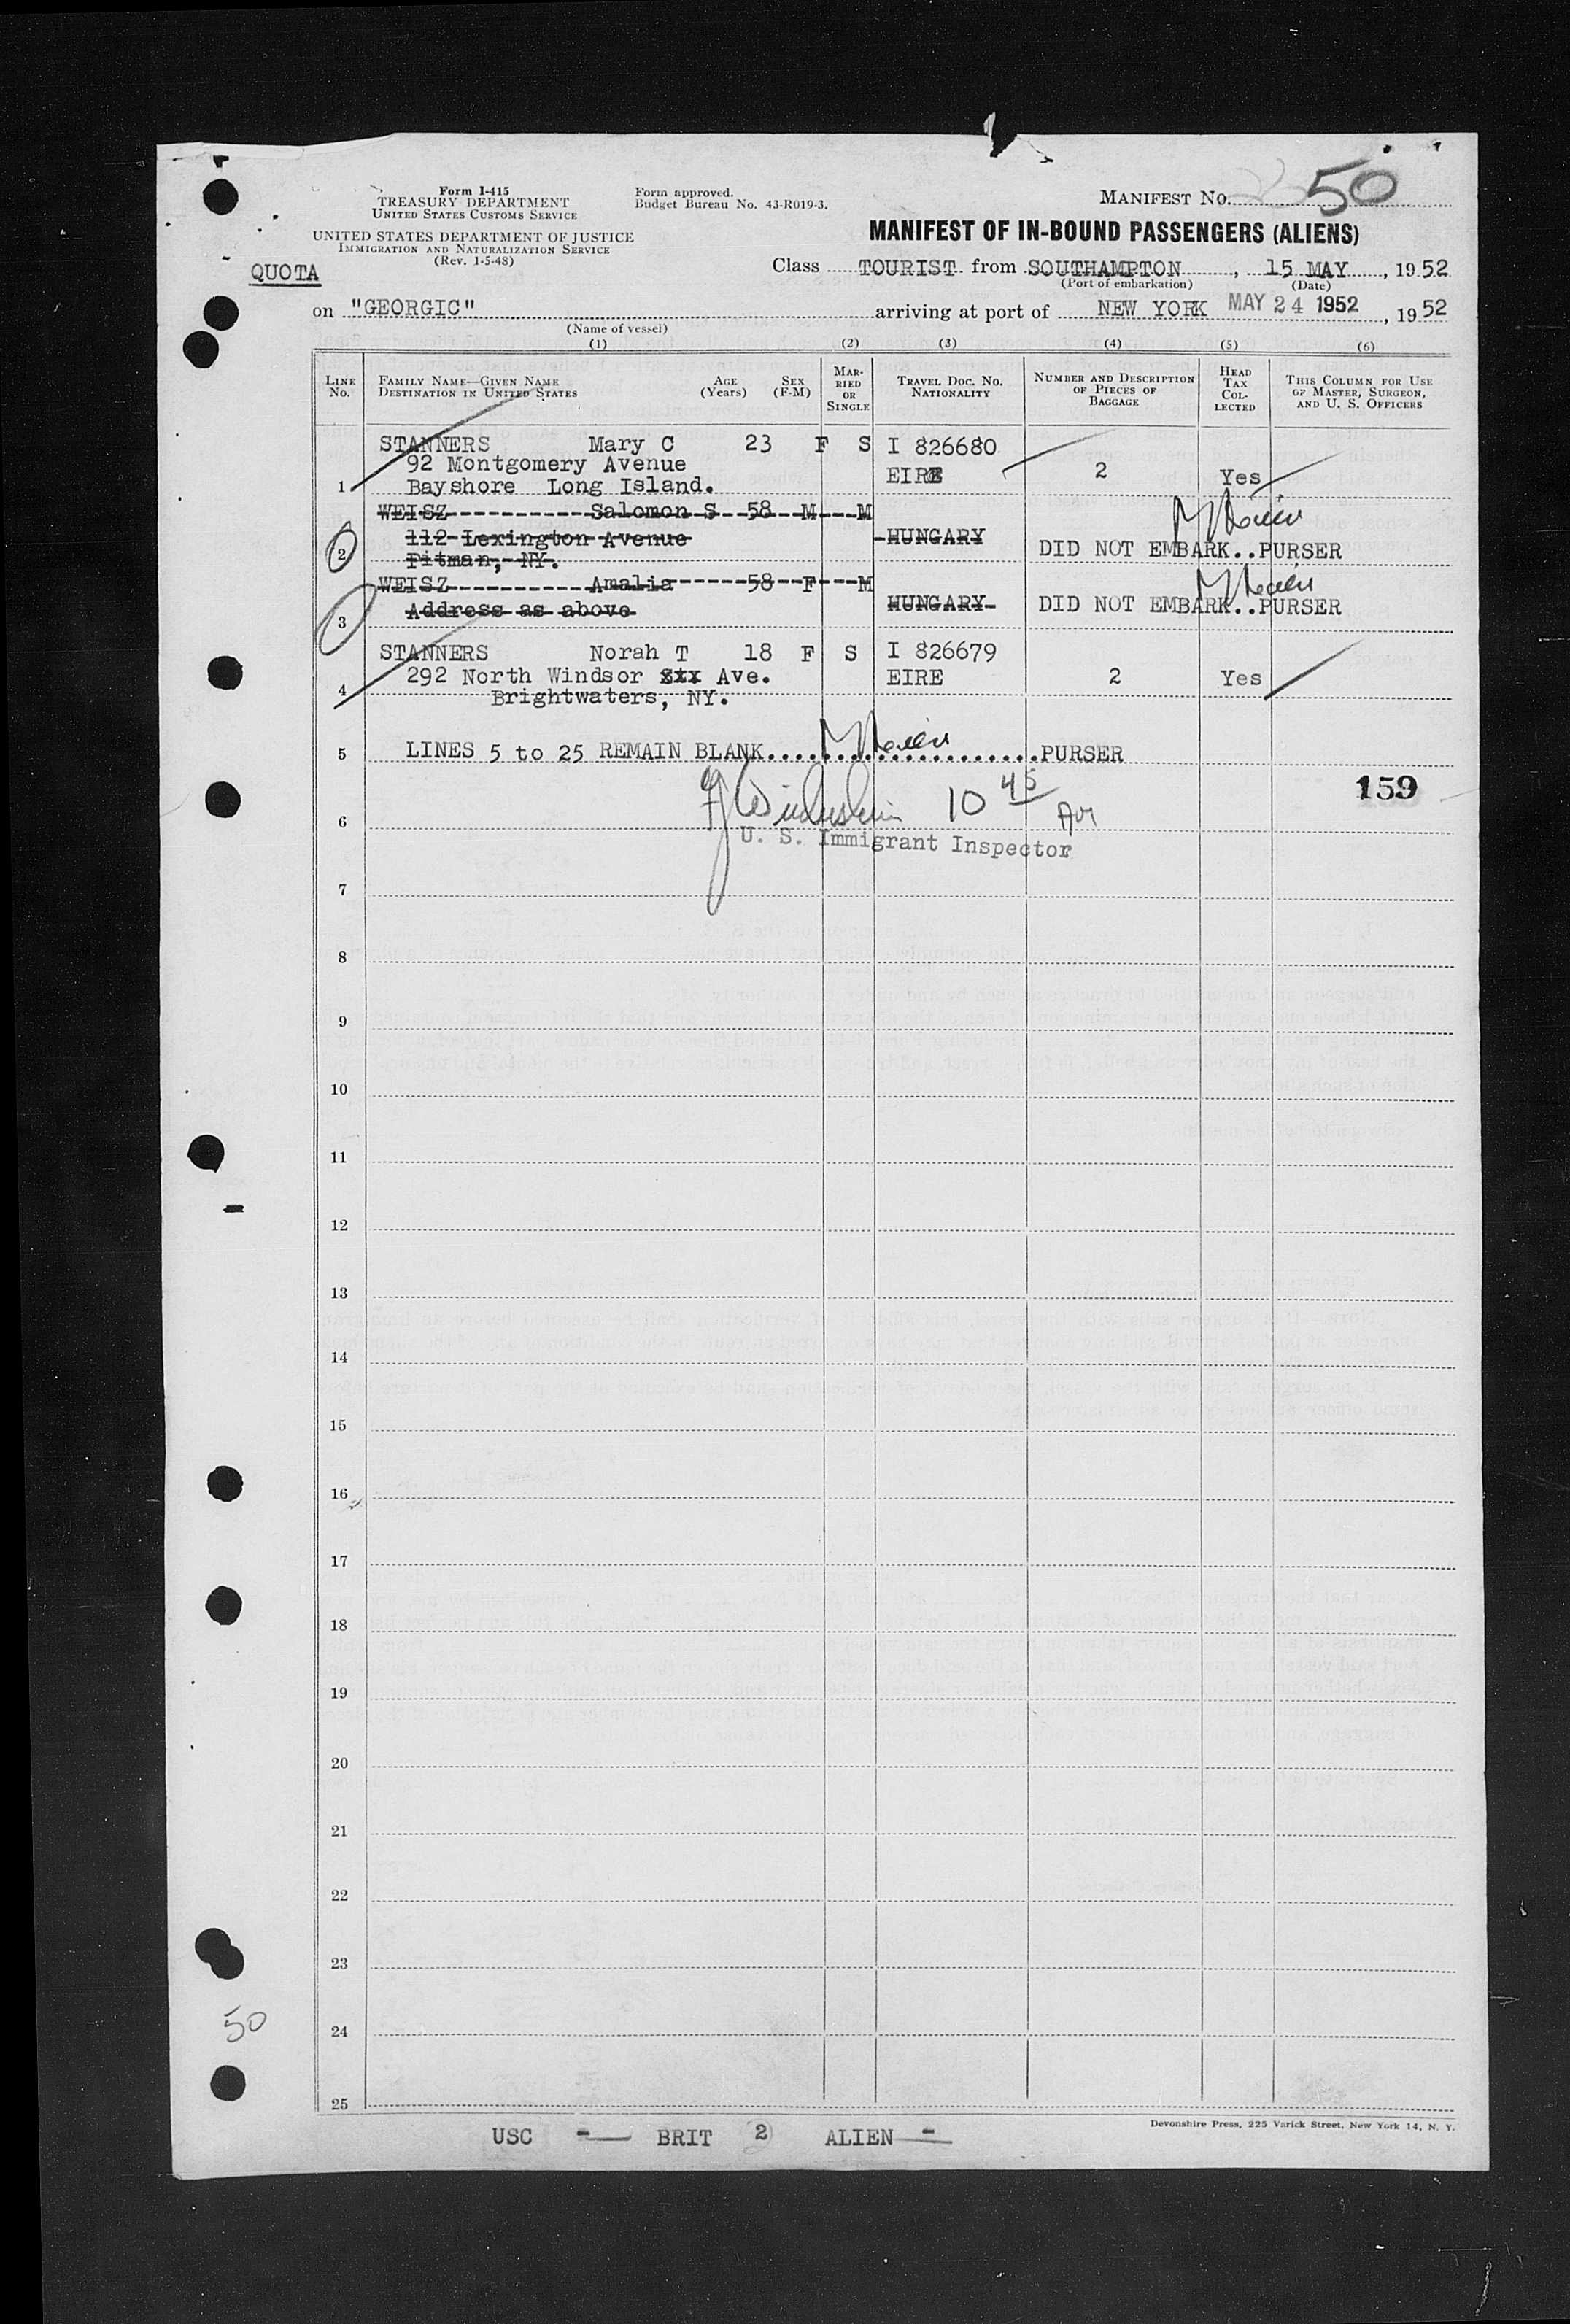 Form I-415
TREASURY DEPARTMENT
UNITED STATES CUSTOMS SERVICE
UNITED STATES DEPARTMENT OF JUSTICE
IMMIGRATION AND NATURALIZATION SERVICE
(Rev. 1-5-48)
Form approved.
Budget Bureau No. 43-R019-3.
MANIFEST NO. 50
MANIFEST OF IN-BOUND PASSENGERS (ALIENS)
QUOTA
Class TOURIST from SOUTHAMPTON, 15 MAY, 1952
(Port of embarkation) (Date)
on "GEORGIC" arriving at port of NEW YORK MAY 24 1952, 1952
(Name of vessel)
(1) (2) (3) (4) (5) (6)
LINE NO.
FAMILY NAME—GIVEN NAME
DESTINATION IN UNITED STATES
AGE (Years)
SEX (F-M)
MARRIED OR SINGLE
TRAVEL DOC. NO. NATIONALITY
NUMBER AND DESCRIPTION OF PIECES OF BAGGAGE
HEAD TAX COLLECTED
THIS COLUMN FOR USE OF MASTER, SURGEON, AND U. S. OFFICERS
STANNERS Mary C 23 F S I 826680
92 Montgomery Avenue EIRE 2 Yes
1 Bayshore Long Island.
WEISZ Salomon S 58 M M
112 Lexington Avenue HUNGARY
2 Pitman, NY. DID NOT EMBARK..PURSER
WEISZ Amalia 58 F M
Address as above HUNGARY DID NOT EMBARK..PURSER
3
STANNERS Norah T 18 F S I 826679
292 North Windsor Ave. EIRE 2 Yes
4 Brightwaters, NY.
5 LINES 5 to 25 REMAIN BLANK..........PURSER
159
10 45
6
U. S. Immigrant Inspector
7
8
9
10
11
12
13
14
15
16
17
18
19
20
21
22
23
50
24
25
Devonshire Press, 225 Varick Street, New York 14, N. Y.
USC - BRIT 2 ALIEN -